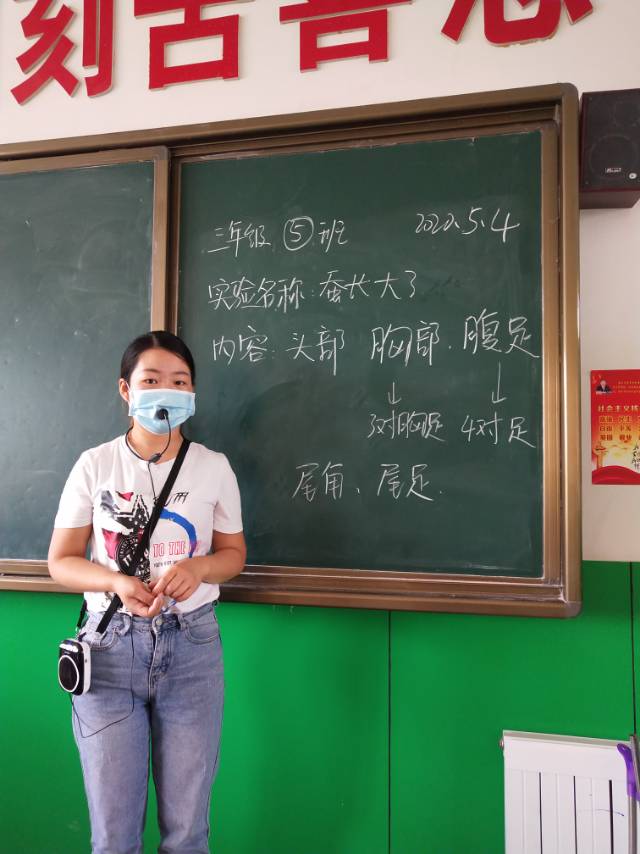 刻苦善思
三年级 ⑤ 班 2020.5.4
实验名称：蚕长大了
内容：头部 胸部、腹足
↓ ↓
3对胸足 4对足
尾角、尾足.
TO THE
社会主义核